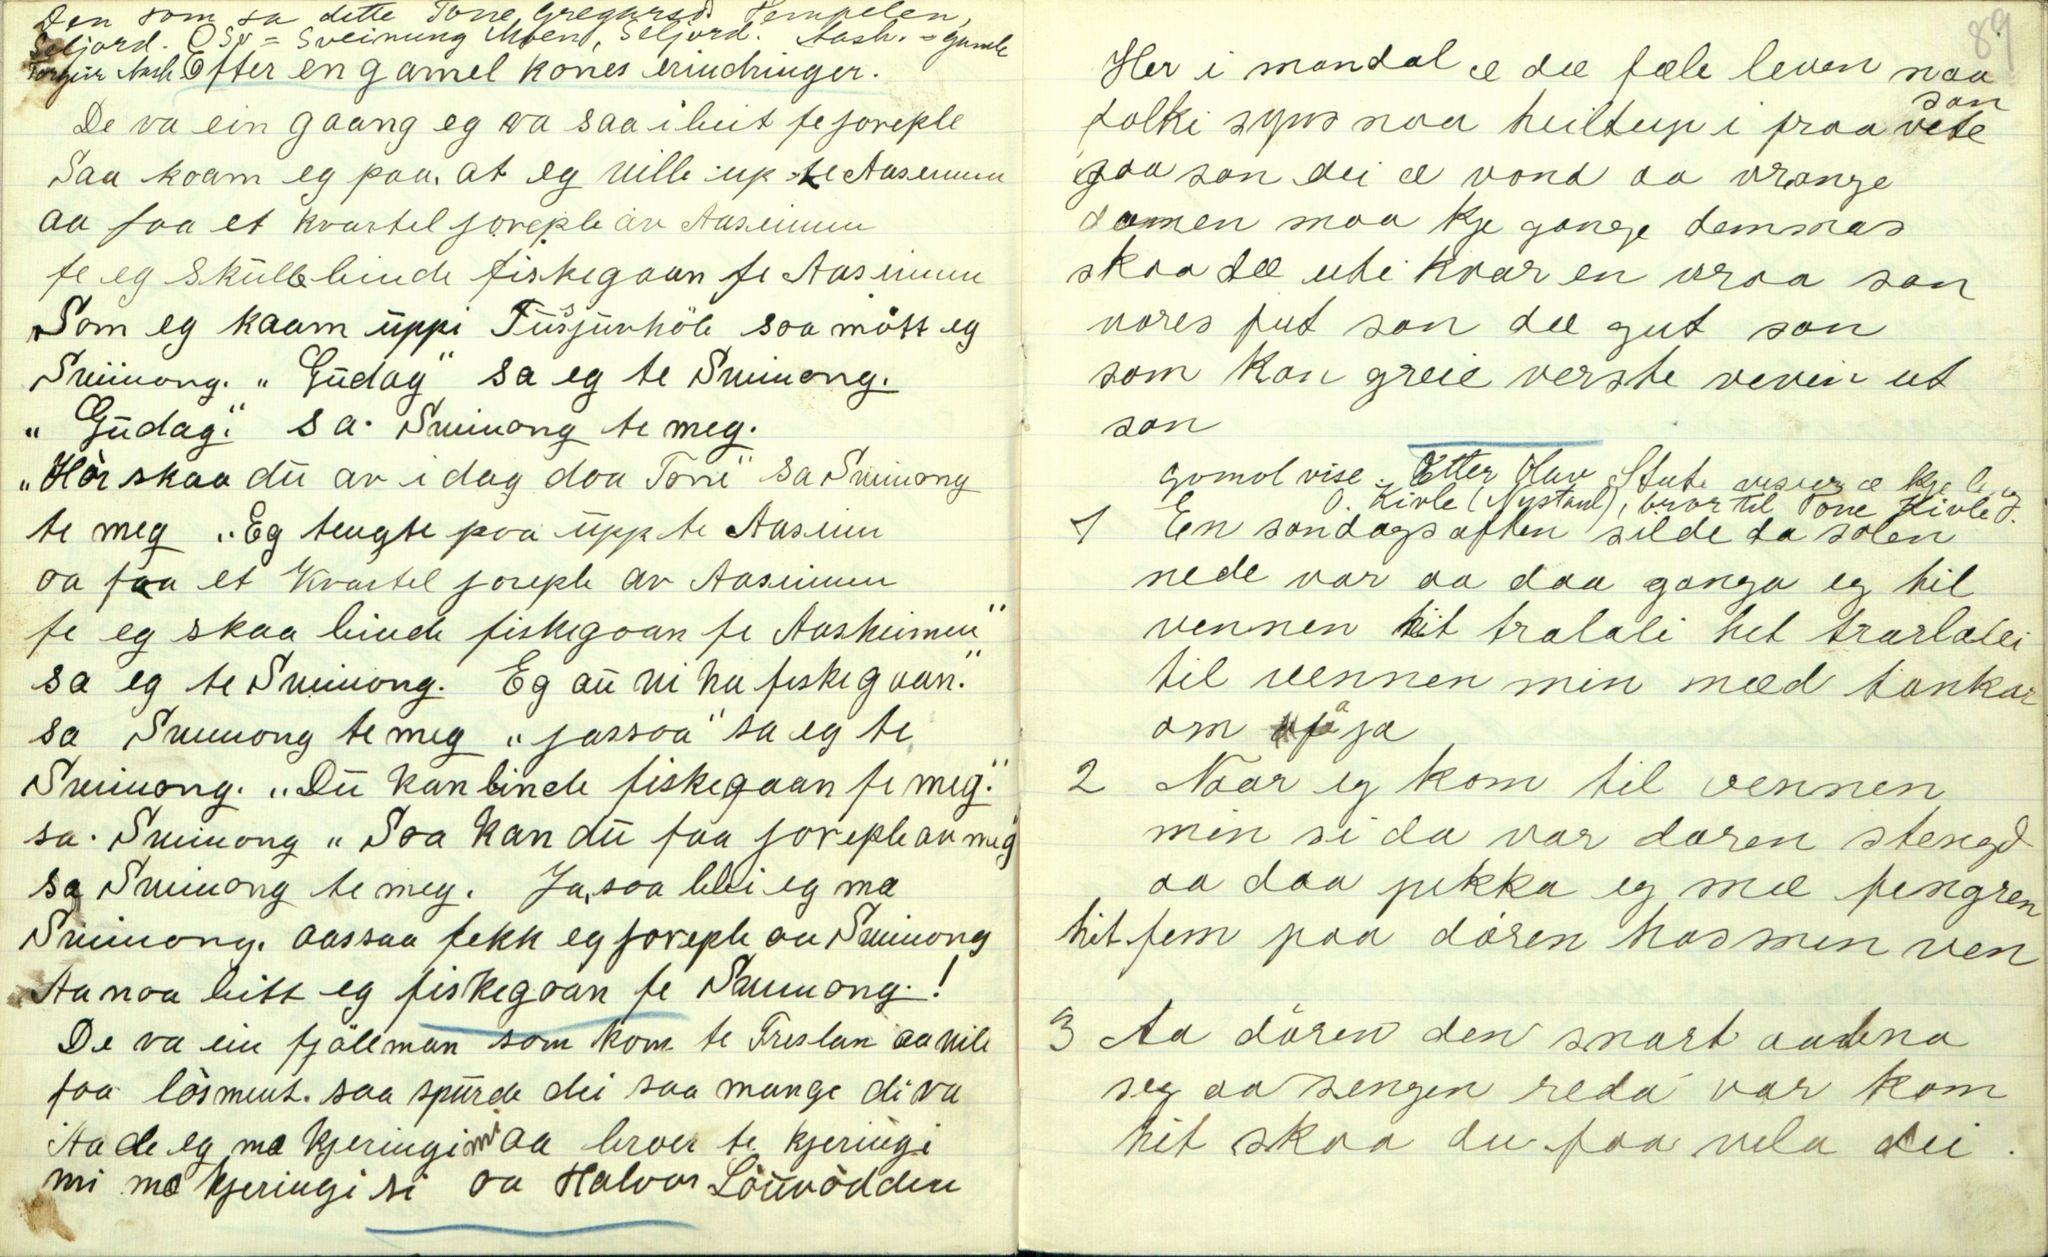 Den som sa dette Tone Gregarsd. Tempelen,
Seljord. O Sv = Sveinung Moen, Seljord. Aash. = gamle
Torgeir Aash. Efter en gamel kones erindringer.
De va ein gaang eg va saa i beit fe joreple
Saa koam eg paa, at eg ville up te Aaseimun
aa faa et kvartel joreple av Aaseimun
fe eg skulle binde fiskegaan fe Aaseimun
Som eg kaam uppi Tussjuvhöle saa mött eg
Sveinong. „Gudag" sa eg te Sveinong.
„Gudag." sa Sveinong te meg.
„Hör skaa du av i dag daa Tone" sa Sveinong
te meg „Eg tengte paa upp te Aaseimun
aa faa et kvartel joreple av Aaseimun
fe eg skaa binde fiskegoan fe Aasheimen"
sa eg te Sveinong. Eg au vi ha fiskegaan."
sa Sveinong te meg „jassoa" sa eg te
Sveinong. „Du kan binde fiskegaan fe meg."
sa Sveinong „Soa kan du faa joreple av meg"
sa Sveinong te meg. Ja, soa blei eg mæ
Sveinong. aassaa fekk eg joreple av Sveinong
Aa noa bitt eg fiskegoan fe Sveinong!
De va ein fjöllman som kom te Treslan aa vile
faa lösment. saa spurde dei saa mange di va
Aa de eg mæ kjeringi mi aa bror te kjeringi
mi mæ kjeringi si aa Halvor Löuvödden
89
Her i mandal æ dæ fæle leven naa
folki syns naa heiltup i fraa vete
san
gaa san dei æ vond aa vrange
damen maa kje gange demmas
skaa dæ uti kvar en vraa san
vores fut san dæ gut san
som kan greie verste veven ut
san
gomol vise. Etter Hav Stut visur æ kje leng
O. Kivle (Nystaul), bror til Tone Kivle J.
1 En søndags aften silde da solen
nede var aa daa ganga eg til
vennen hit tralali het trarlalei
til vennen min mæd tankar
om aa ja
2 Naar eg kom til vennen
min si da var doren stengd
aa daa pikka eg mæ fengren
hit fem paa dören hos min ven
3 Aa dören den snart aadna
seg aa sengen reda var kom
hit skaa du faa vela dei.